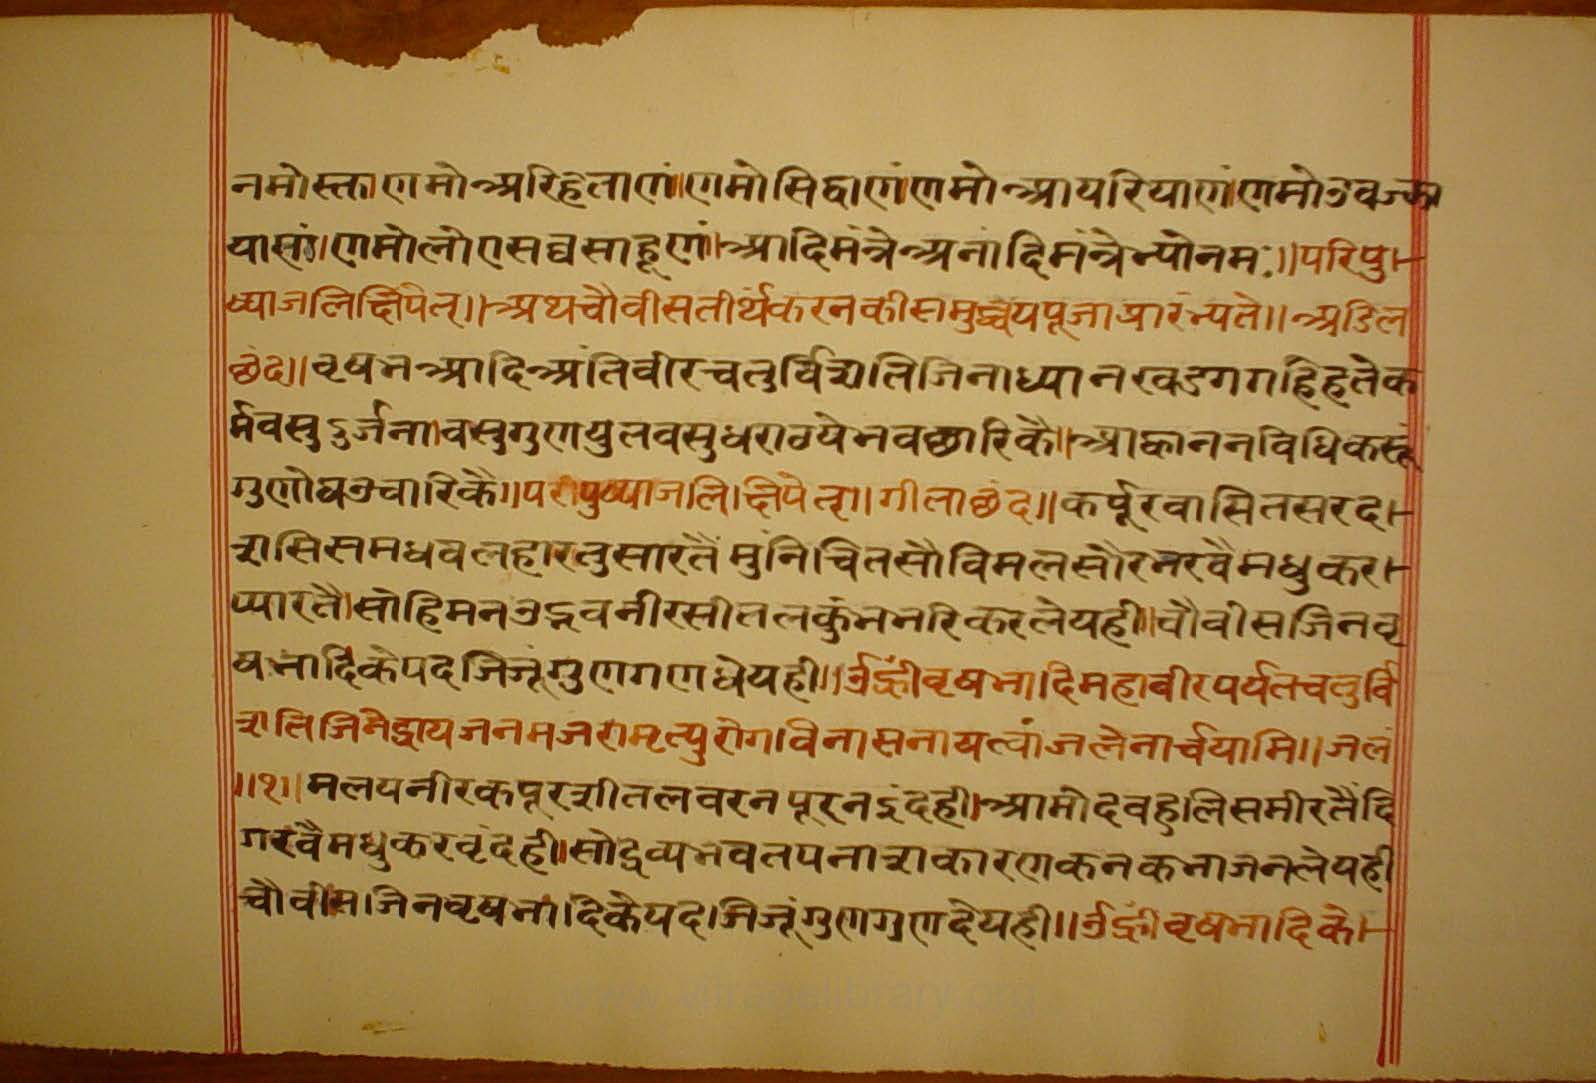 नमोस्तु।णमोअरिहंताणं।णमोसिद्धाणं।णमोआयरियाणं।णमोउवज्झा
याणं।णमोलोएसव्वसाहूणं॥आदिमंत्रेअनांदिमंत्रेभ्योनमः॥परिपु
ष्पांजलिंक्षिपेत्॥अथचौवीसतीर्थंकरनकीसमुच्चयपूजाप्रारंभ्यते॥अडिल
छंद॥वृषभआदिअंतिवीरचतुर्विंशतिजिना।ध्यानखडगगहिहतेक
र्मवसुदुर्जना।वसुगुणयुतवसुधराठयेनवछारिकै।आह्वाननविधिकरूं
गुणोघउचारिकै॥परिपुष्पांजलिंक्षिपेत्॥गीताछंद॥कर्पूरवासितसरद
शसिसमधवलहारतुसारतैंमुनिचितसौविमलसौरभरवैमधुकर
प्यारतै।सोहिमनउद्भवनीरसीतलकुंभभरिकरलेयही।चौवीसजिनवृ
षभादिकेपदजिजूंगुणगणधेयही॥ॐह्रींवृषभादिमहावीरपर्यंतचतुर्विं
शतिजिनेंद्रायजनमजरामृत्युरोगविनासनायत्वांजलेनार्चयामि॥जलं
॥१॥मलयनीरकपूरशीतलवरनपूरनइंदही।आमोदवहुलिसमीरतैंदि
गरवैमधुकरवृंदही।सोद्रव्यभवतपनाशकारणकनकभाजनलेयही
चौवीसजिनवृषभादिकेपदजिजूंगुणगुणदेयही॥ॐह्रींवृषभादिके